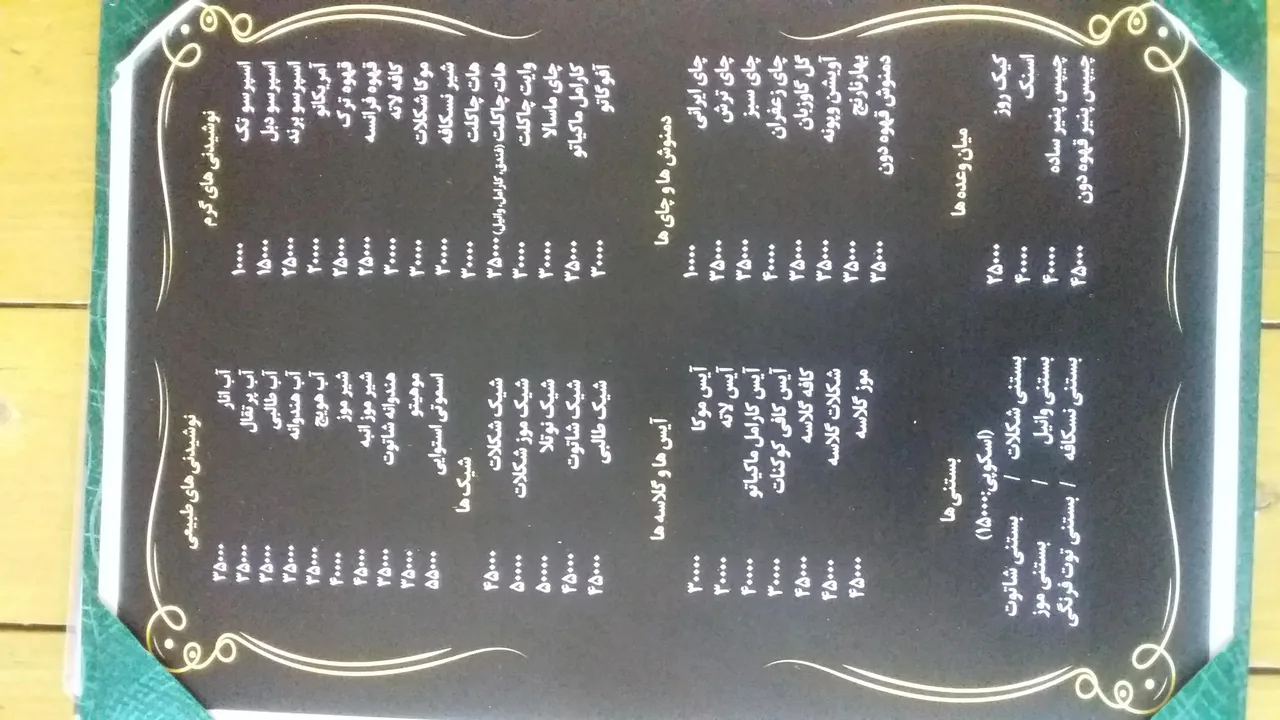 نوشیدنی های گرم
اسپرسو تک ۱۰۰۰۰
اسپرسو دبل ۱۵۰۰۰
اسپرسو برند ۲۵۰۰۰
آمریکانو ۲۰۰۰۰
قهوه ترک ۲۵۰۰۰
قهوه فرانسه ۲۵۰۰۰
کافه لاته ۳۰۰۰۰
موکا شکلات ۳۰۰۰۰
شیر نسکافه ۳۰۰۰۰
هات چاکلت ۳۰۰۰۰
هات چاکلت (فندق، کارامل، وانیل) ۳۵۰۰۰
وایت چاکلت ۳۰۰۰۰
چای ماسالا ۳۰۰۰۰
کارامل ماکیاتو ۳۵۰۰۰
آفوگاتو ۳۰۰۰۰
دمنوش ها و چای ها
چای ایرانی ۱۰۰۰۰
چای ترش ۳۵۰۰۰
چای سبز ۳۵۰۰۰
چای زعفران ۴۰۰۰۰
گل گاوزبان ۳۵۰۰۰
آویشن و پونه ۳۵۰۰۰
بهارنارنج ۳۵۰۰۰
دمنوش قهوه دون ۳۵۰۰۰
میان وعده ها
کیک روز ۲۵۰۰۰
اسنک ۴۰۰۰۰
چیپس پنیر ساده ۴۰۰۰۰
چیپس پنیر قهوه دون ۴۵۰۰۰
نوشیدنی های طبیعی
آب انار ۳۵۰۰۰
آب پرتقال ۳۵۰۰۰
آب طالبی ۳۵۰۰۰
آب هندوانه ۳۵۰۰۰
آب هویج ۳۵۰۰۰
شیر موز ۴۰۰۰۰
شیر موز انبه ۴۵۰۰۰
هندوانه شاتوت ۳۵۰۰۰
موهیتو ۳۵۰۰۰
اسموتی استوایی ۵۵۰۰۰
شیک ها
شیک شکلات ۴۵۰۰۰
شیک موز شکلات ۵۰۰۰۰
شیک نوتلا ۵۰۰۰۰
شیک شاتوت ۴۵۰۰۰
شیک طالبی ۴۵۰۰۰
آیس ها و گلاسه ها
آیس موکا ۳۰۰۰۰
آیس لاته ۳۰۰۰۰
آیس کارامل ماکیاتو ۴۰۰۰۰
آیس کافی کوکنات ۳۰۰۰۰
کافه گلاسه ۴۵۰۰۰
شکلات گلاسه ۴۵۰۰۰
موز گلاسه ۴۵۰۰۰
بستنی ها
(اسکوپی:۱۵۰۰۰)
بستنی شکلات / بستنی شاتوت
بستنی وانیل / بستنی موز
بستنی نسکافه / بستنی توت فرنگی